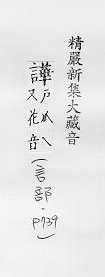 精嚴新集大藏音
譁戶瓜又花音(言部．P739)